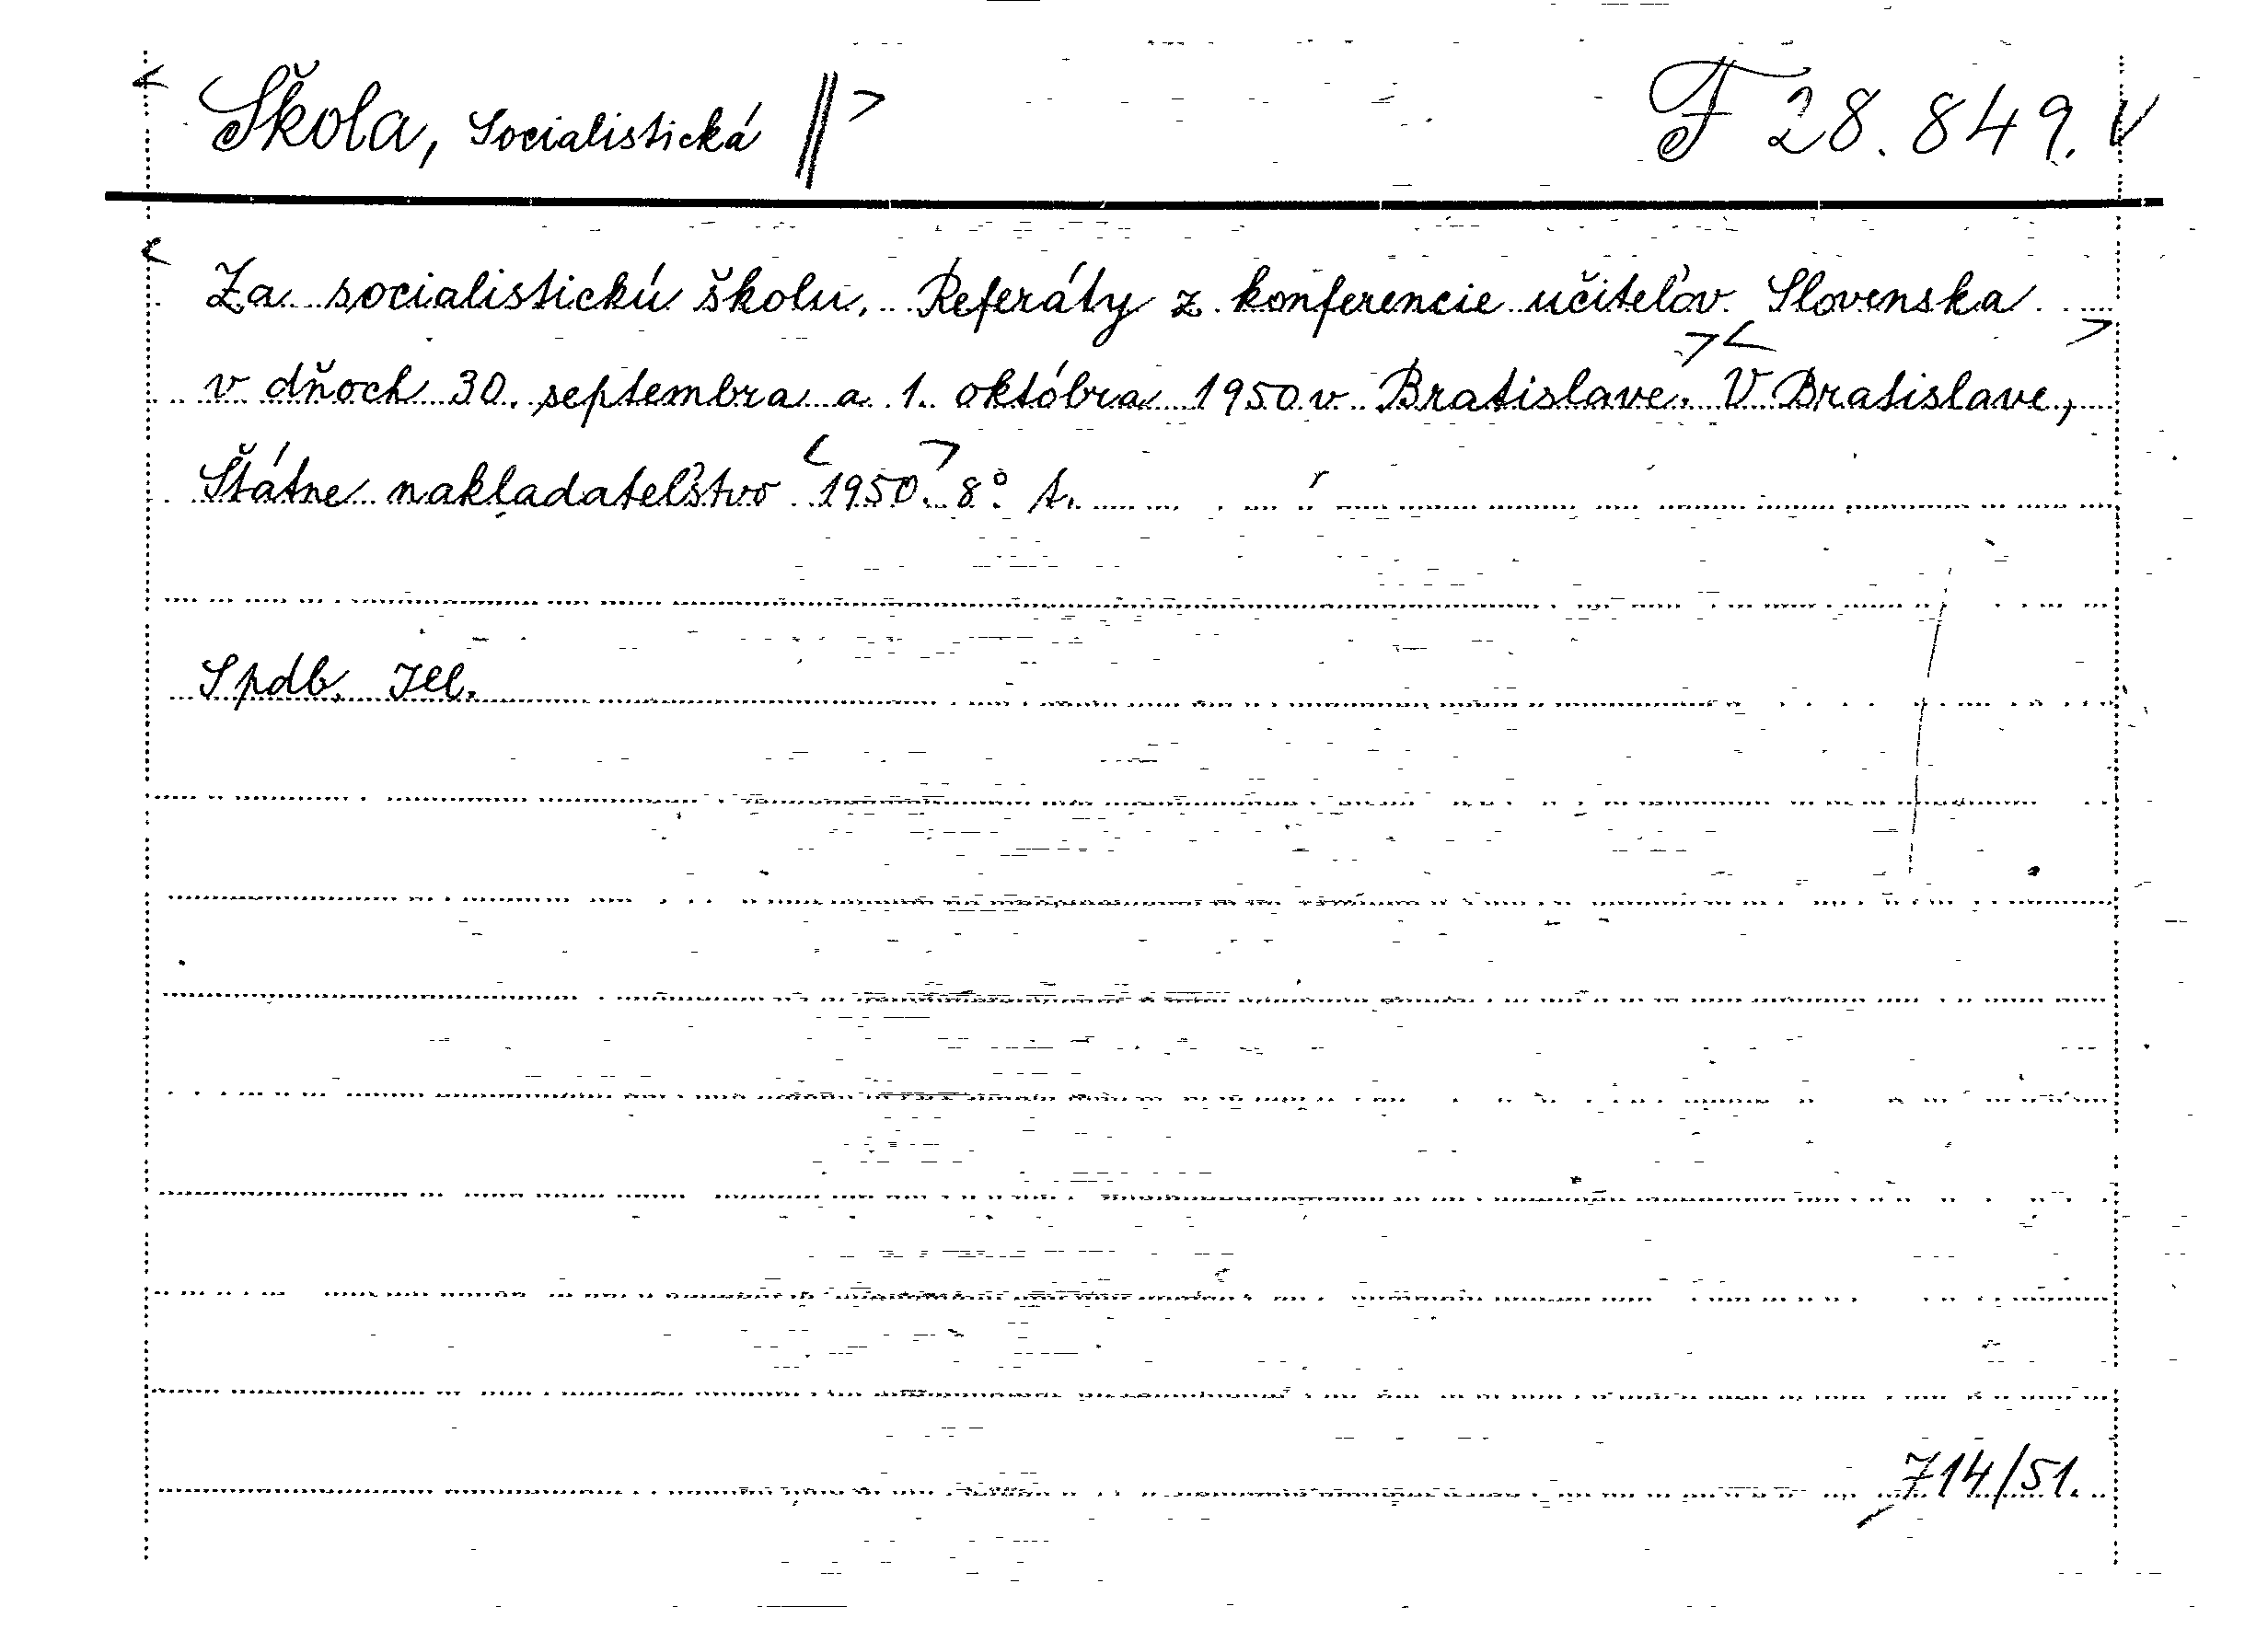 < Škola, Socialistická || > F 28.849. V
< Za socialistickú školu. Referáty z konferencie učiteľov Slovenska
v dňoch 30. septembra a 1. októbra 1950 v Bratislave. > < V Bratislave, >
Štátne nakladateľstvo < 1950. > 8°. t.
Spdb. Ill.
714/51.